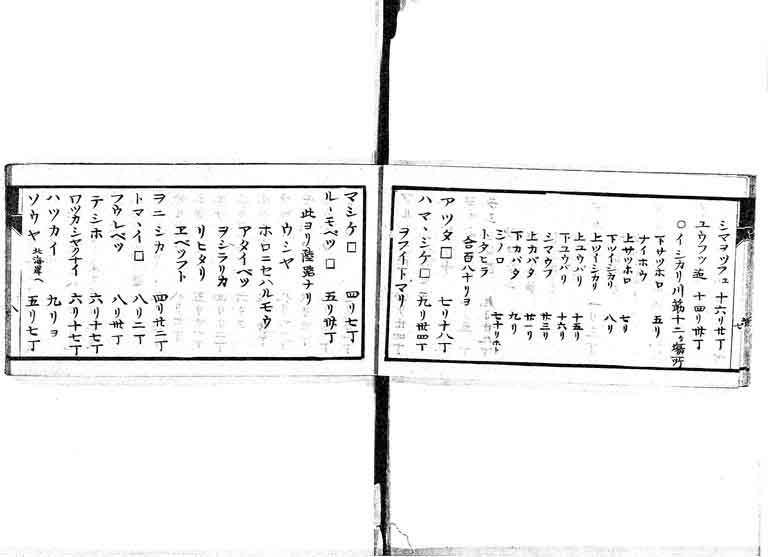 シマヲツフュ 十六リ廿丁
ユウフツ迄 十四リ卅丁
○イシカリ川筋十二ヶ場所
下サツホロ 五リ
ナイホウ
上サツホロ 七リ
下ツイシカリ 八リ
上ツイシカリ 十五リ
上ユウバリ
下ユウバリ 十六リ
シマウフ 廿三リ
上カバタ 廿一リ
下カバタ 九リ
ジノロ
トタヒラ 七十リホト
合百八十リヨ
アツタ□ 七リ十八丁
ハマヽシケ□ 九リ卅四丁
ヲフイトマリ
マシケ□ 四リ七丁
ルヽモベツ□ 五リ卅丁
此ヨリ陸路ナリ
ウシヤ
ホロニセハルモウ
アタイベツ
ヲシラリカ
リヒタリ
ヱベソフト
ヲニシカ 四リ廿二丁
トマヽイ□ 八リ二丁
フウレベツ 八リ卅丁
テシホ 六リ十七丁
ワツカシヤクナイ 六リ十七丁
ハツカイ 九リヨ
ソウヤ 北海岸ヘ 五リ七丁
八